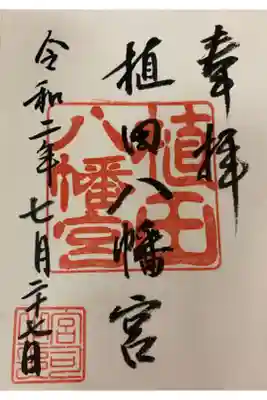 奉拝
植田八幡宮
植田
八幡宮
令和二年七月二十七日